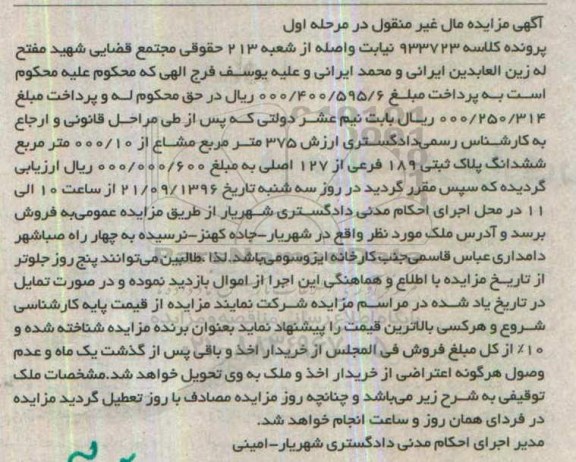 آگهی مزایده مال غیر منقول در مرحله اول
پرونده کلاسه ۹۳۳۷۲۳ نیابت واصله از شعبه ۲۱۳ حقوقی مجتمع قضایی شهید مفتح
له زین العابدین ایرانی و محمد ایرانی و علیه یوسف فرج الهی که محکوم علیه محکوم
است به پرداخت مبلغ ۰۰۰/۴۰۰/۵۹۵/۶ ریال در حق محکوم له و پرداخت مبلغ
۰۰۰/۲۵۰/۳۱۴ ریال بابت نیم عشر دولتی که پس از طی مراحل قانونی و ارجاع
به کارشناس رسمی‌دادگستری ارزش ۳۷۵ متر مربع مشاع از ۰۰۰/۱۰ متر مربع
ششدانگ پلاک ثبتی ۱۸۹ فرعی از ۱۲۷ اصلی به مبلغ ۰۰۰/۰۰۰/۶۰۰ ریال ارزیابی
گردیده که سپس مقرر گردید در روز سه شنبه تاریخ ۲۱/۰۹/۱۳۹۶ از ساعت ۱۰ الی
۱۱ در محل اجرای احکام مدنی دادگستری شهریار از طریق مزایده عمومی‌به فروش
برسد و آدرس ملک مورد نظر واقع در شهریار-جاده کهنز-نرسیده به چهار راه صباشهر
دامداری عباس قاسمی‌جنب کارخانه ایزوسومی‌باشد.لذا طالبین می‌توانند پنج روز جلوتر
از تاریخ مزایده با اطلاع و هماهنگی این اجرا از اموال بازدید نموده و در صورت تمایل
در تاریخ یاد شده در مراسم مزایده شرکت نمایند مزایده از قیمت پایه کارشناسی
شروع و هرکسی بالاترین قیمت را پیشنهاد نماید بعنوان برنده مزایده شناخته شده و
۱۰٪ از کل مبلغ فروش فی المجلس از خریدار اخذ و باقی پس از گذشت یک ماه و عدم
وصول هرگونه اعتراضی از خریدار اخذ و ملک به وی تحویل خواهد شد.مشخصات ملک
توقیفی به شرح زیر می‌باشد و چنانچه روز مزایده مصادف با روز تعطیل گردید مزایده
در فردای همان روز و ساعت انجام خواهد شد.
مدیر اجرای احکام مدنی دادگستری شهریار-امینی